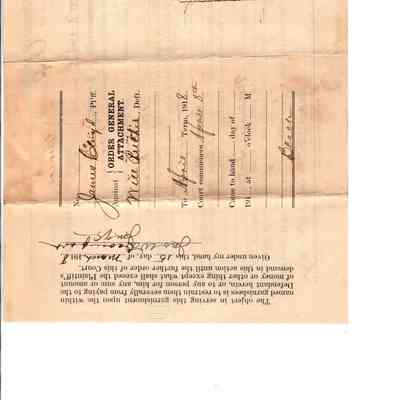 No.
James Bright, Pltf.
Against
ORDER GENERAL
ATTACHMENT.
Will Puttis, Deft.
To April Term, 1918
Court commences April 8th
Came to hand day of
191 at o'clock M
The object in serving this garnishment upon the within
named garnishees is to restrain them severally from paying to the
Defendant herein, or to any person for him, any sum or amount
of money or other thing except what shall exceed the Plaintiff's
demand in this action until the further order of this Court.
Given under my hand, this 15 day of March 1918